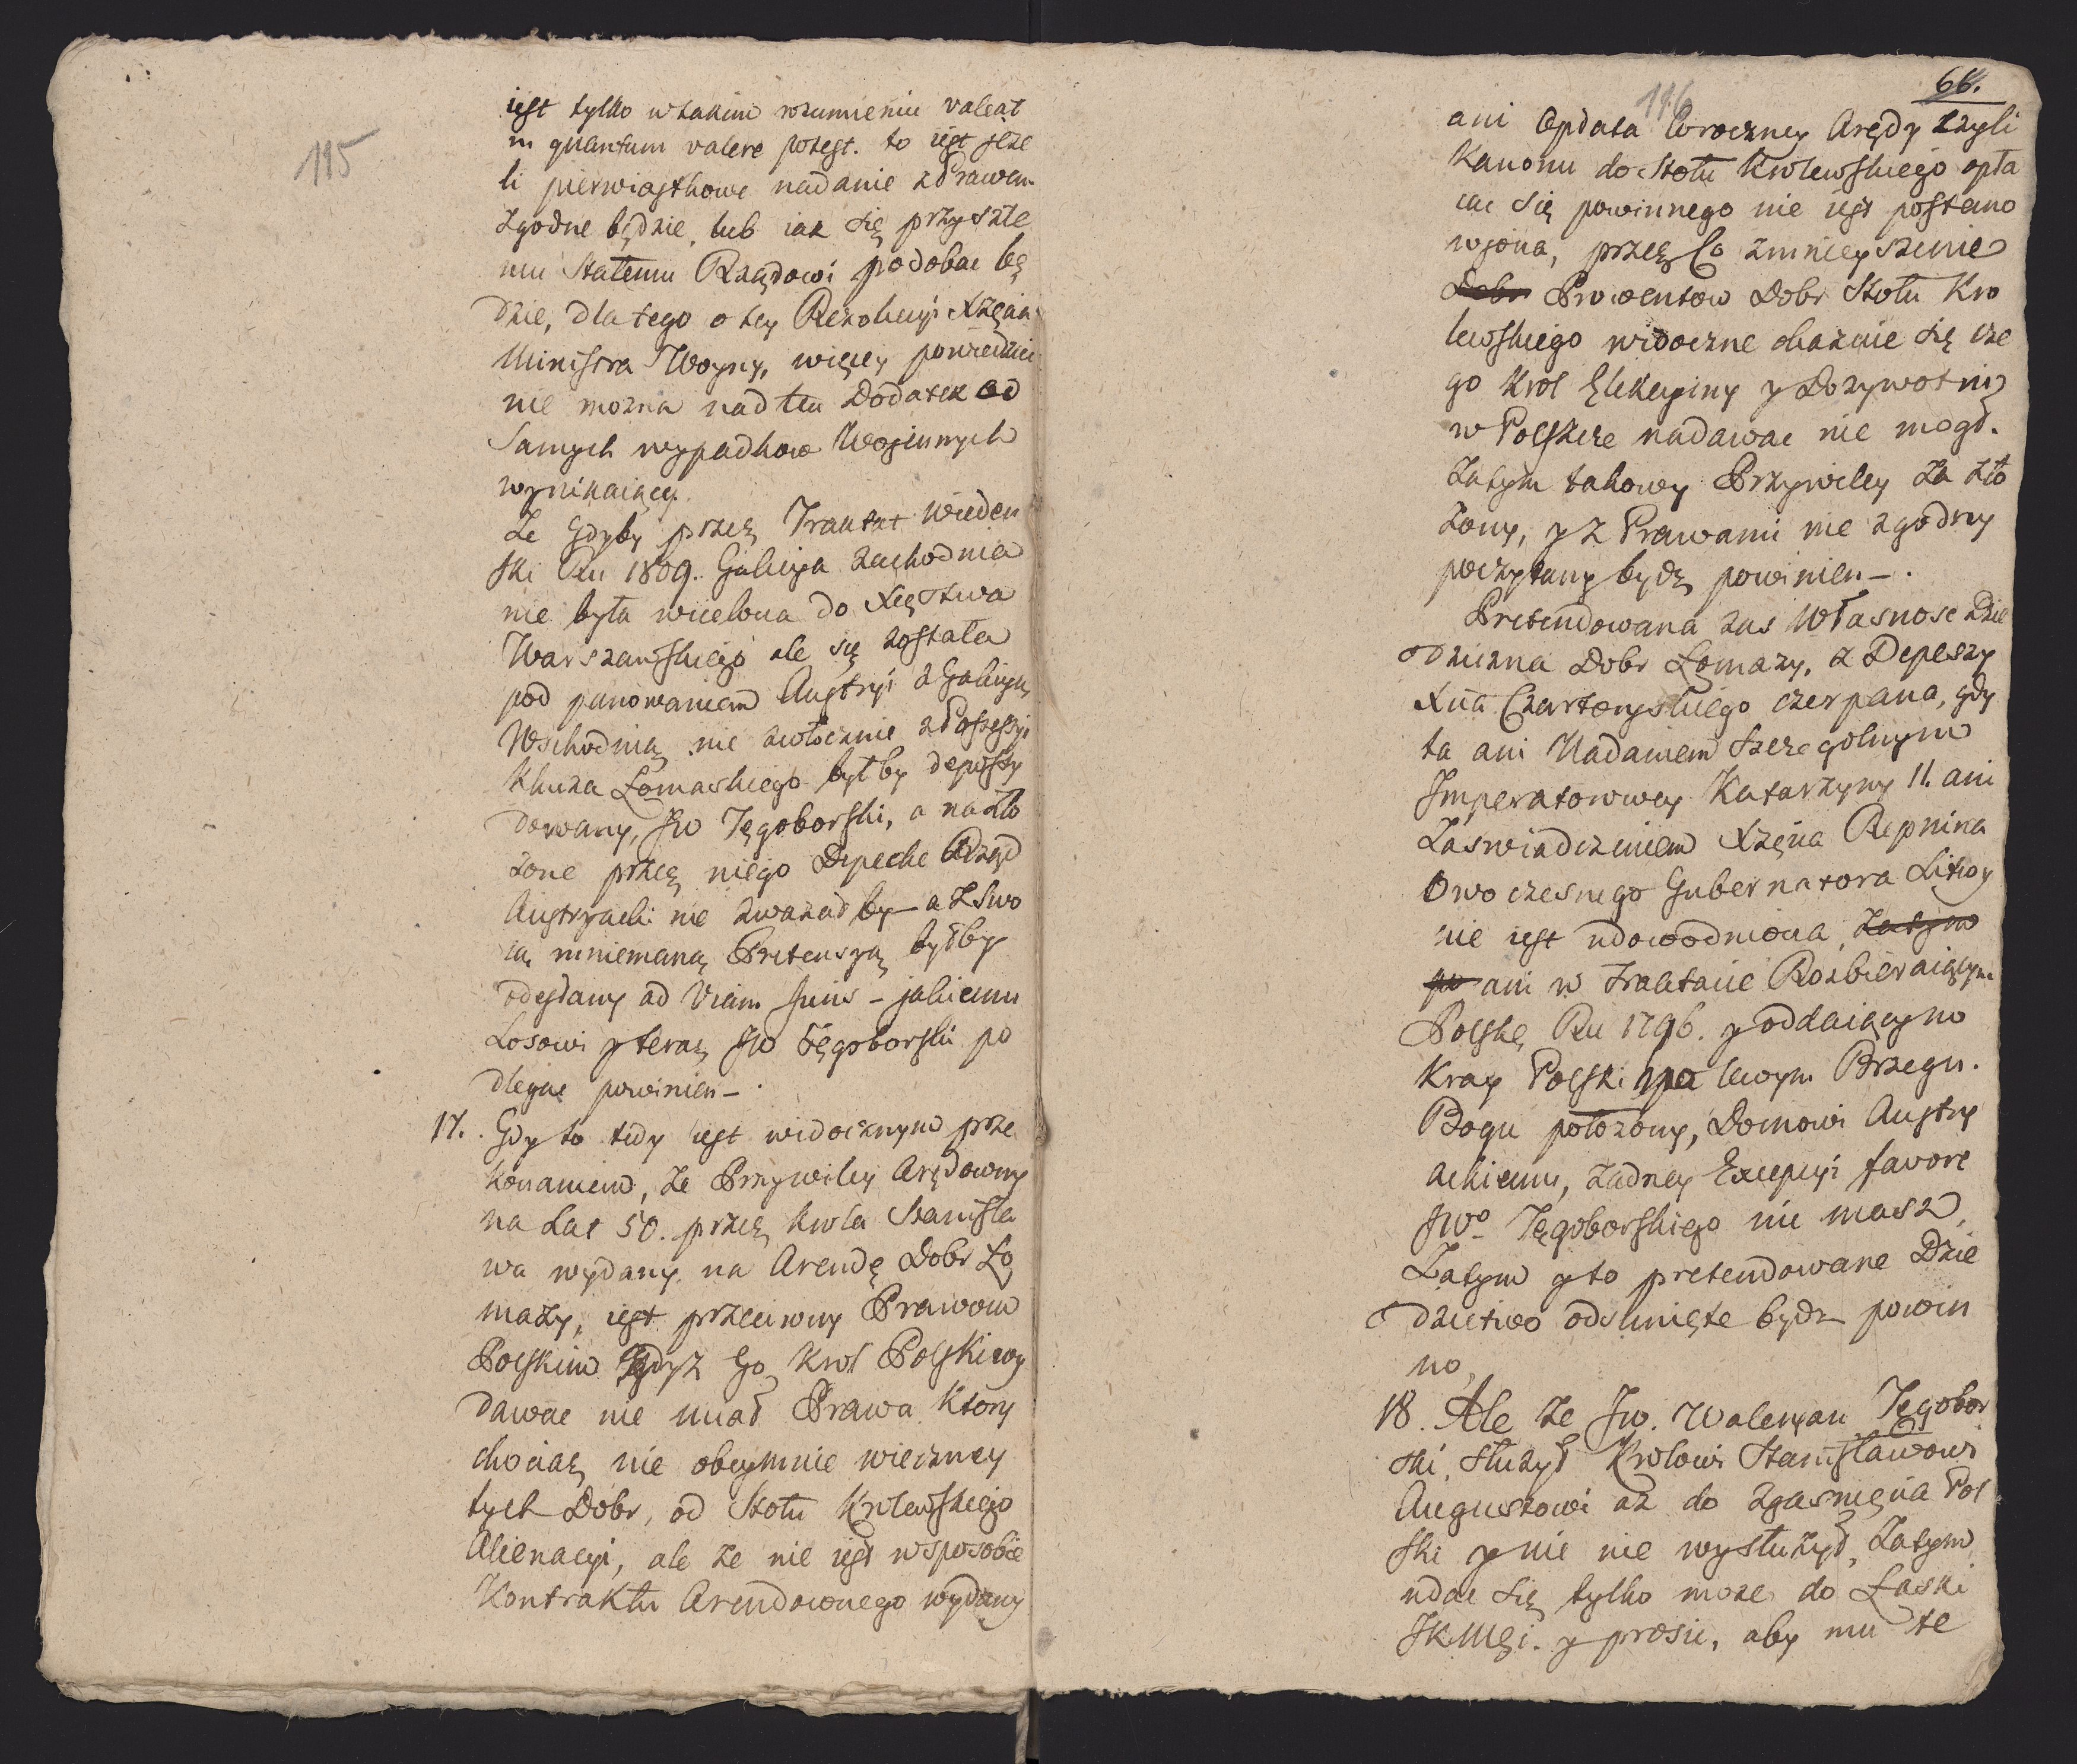 115
iest tylko w takim rozumieniu valeat
in quantum valere potest. to iest jeże
li pierwiastkowe nadanie z Prawem
zgodne będzie, lub iak się przyszłe
mu Stałemu Rządowi podobac bę
dzie, dla tego o tey Rezolucyi Xżęcia
Ministra Woyny, więcey powiedziec
nie mozna nad ten Dodatek od
Samych wypadkow Woiennych
wynikaiący.
Ze Gdyby przez Traktat Wieden
ski Ru 1809. Galicya zachodnia
nie była wcielona do Xięstwa
Warszawskiego ale się została
pod panowaniem Austryi z Galicyą
Wschodnią nie zwłocznie z Possessyi
Klucza Łomaskiego byłby deposse
dowany, JW Tęgoborski, a na zło
zone przez niego Depeche Rząd
Austryacki nie zwazał by a z Swo
ią mniemaną Pretensyą byłby
odesłany ad Viam Juris - jakiemu
Losowi y teraz JW Tęgoborski po
dlegac powinien -.
17. Gdy to tedy iest widocznym prze
konaniem, ze Przywiley Arędowny
na Lat 50. przez Krola Stanisła
wa wydany na Arendę Dobr Ło
mazy, iest przeciwny Prawom
Polskim gdyz Go Krol Polski wy
dawac nie miał Prawa Ktory
chociaz nie obeymuie wieczney
tych Dobr, od Stołu Krolewskiego
Alienacyi, ale ze nie iest w sposobie
Kontraktu Arendownego wydany
66.
116
ani Opłata Coroczney Arędy czyli
Kanonu do Stołu Krolewskiego opła
cac się powinnego nie iest postano
wiona, przez Co zmnieyszenie
Dobr Prowentow Dobr Stołu Kro
lewskiego widoczne okazuie się cze
go Krol Elekcyiny y Dozywotni
w Polszcze nadawac nie mogł.
Zatym takowy Przywiley za zło
zony, y z Prawami nie zgodny
poczytany bydz powinien -.
Pretendowana zas Własnosc Dzie
dziczna Dobr Łomazy, z Depeszy
Xcia Czartoryskiego czerpana, gdy
ta ani Nadaniem szczegolnym
Imperatorowey Katarzyny II. ani
Zaswiadczeniem Xżęcia Repnina
Owoczesnego Gubernatora Litwy
nie iest udowodniona, Zatym
po ani w Traktacie Rozbieraiącym
Polskę Ru 1796. y oddaiącym
Kray Polski na lewym Brzegu
Bogu położony, Domowi Austry
ackiemu, zadney Excepcyi favore
JWo Tęgoborskiego nie masz,
Zatym y to pretendowane Dzie
dzictwo odsunięte bydz powin
no,
18. Ale ze JW. Waleryan Tęgobor
ski, słuzył Krolowi Stanisławowi
Augustowi az do zgasnięcia Pol
ski y nic nie wysłuzył, Zatym
udac się tylko moze do Łaski
JKMCi. y prosic, aby mu te